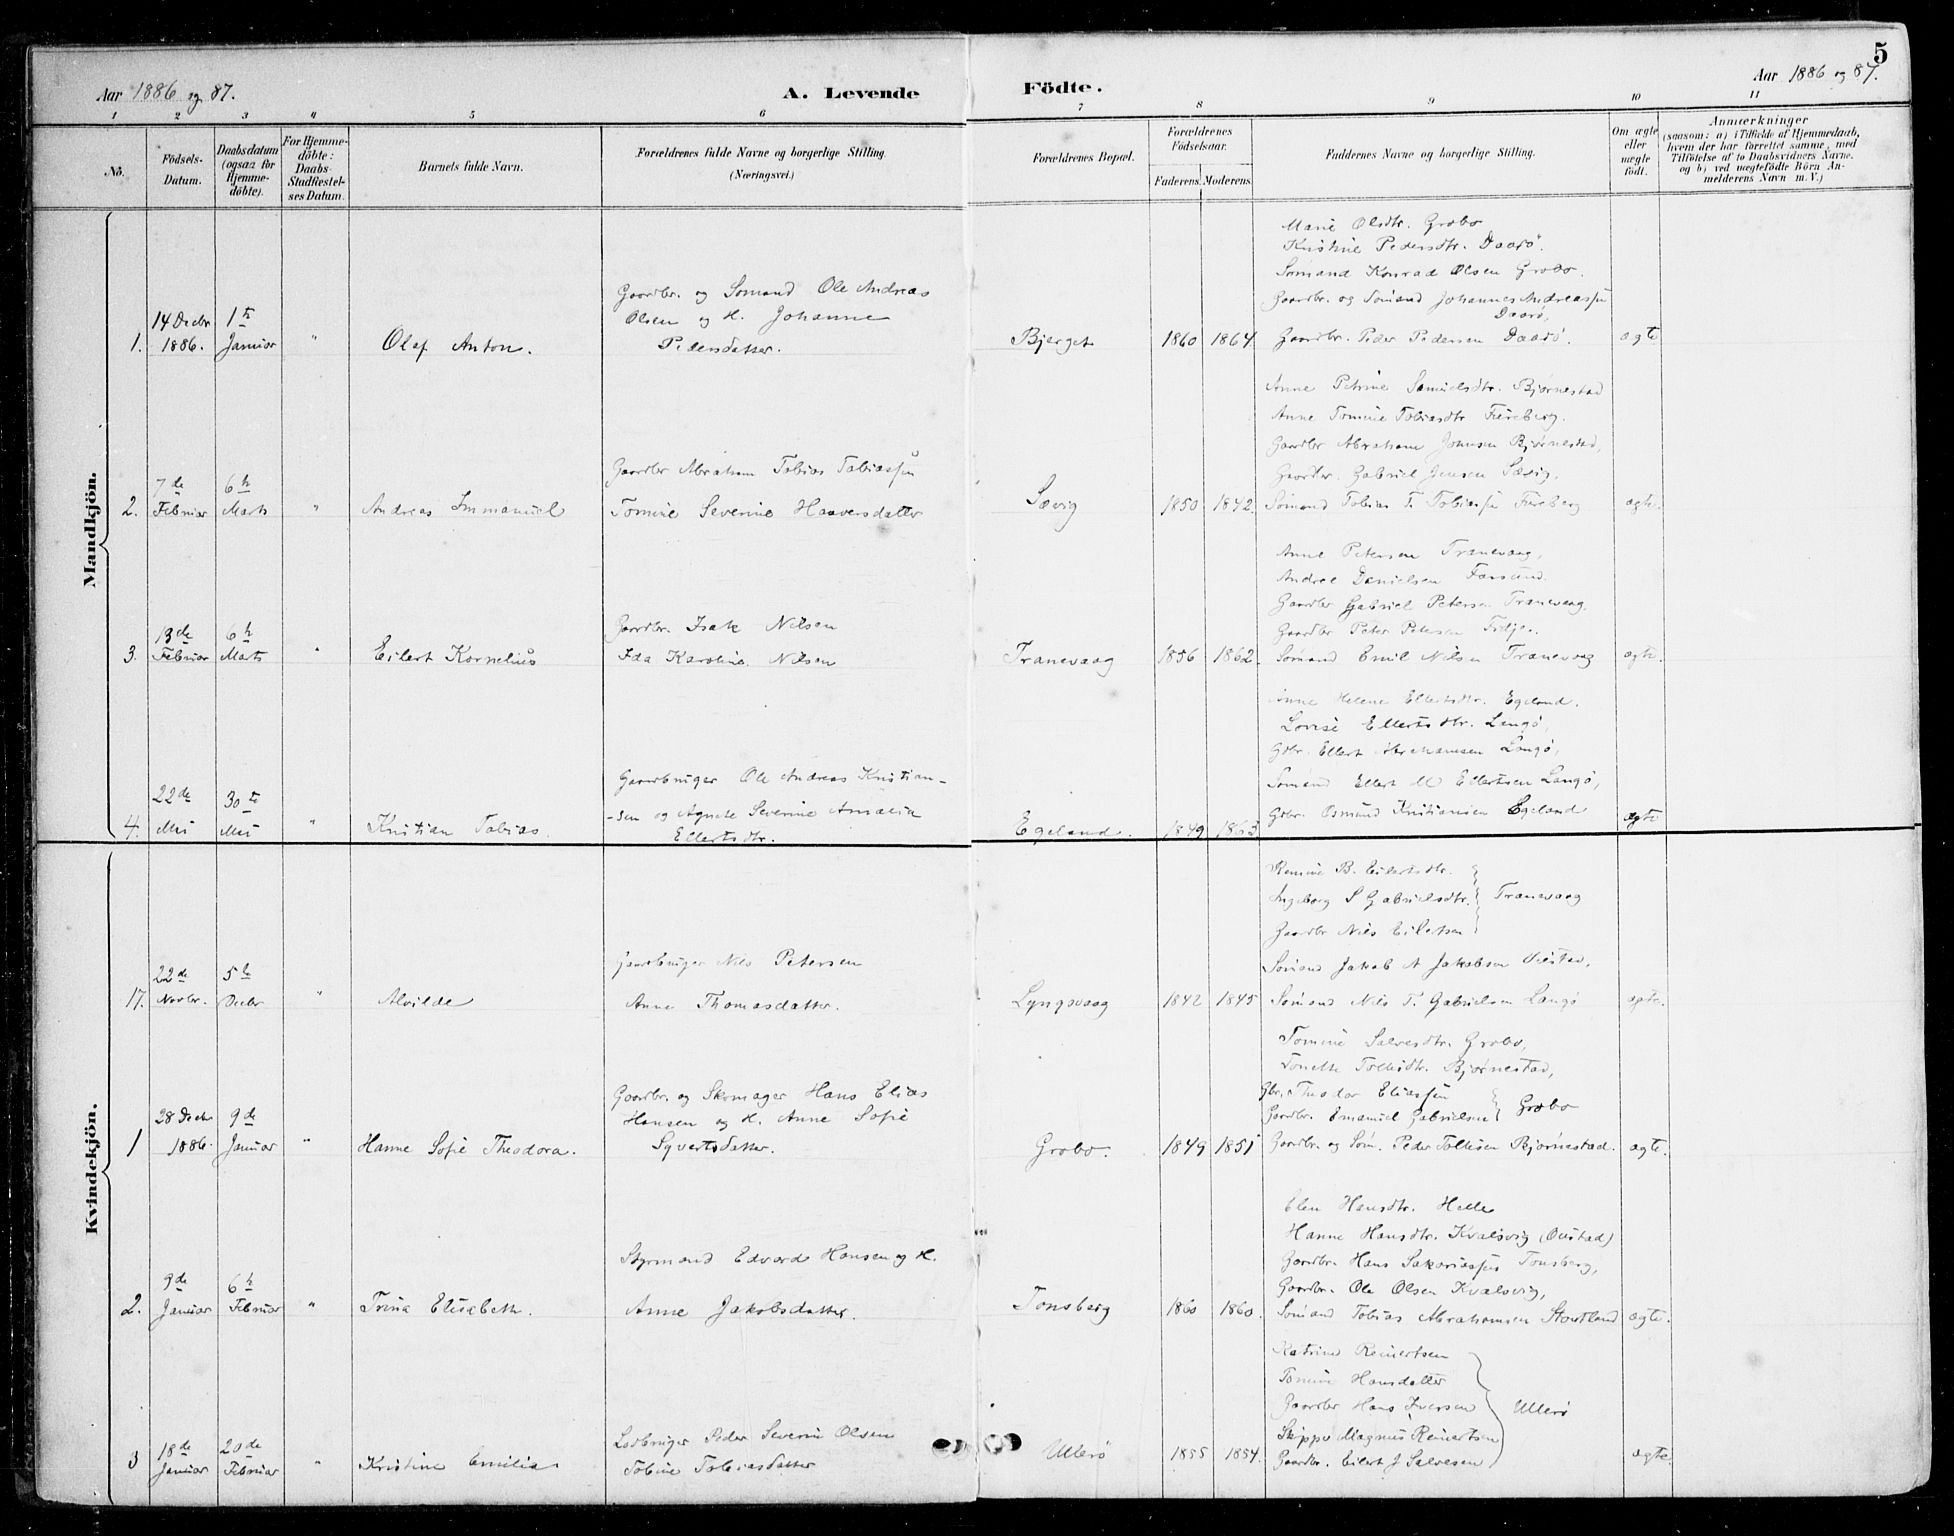 5
Aar 1886 og 87.
A. Levende
Födte.
Aar 1886 og 87.
1 2 3 4 5 6 7 8 9 10 11
No.
Födsels-
Datum.
Daabsdatum
(ogsaa for
Hjemme-
döbte).
For Hjemme-
döbte:
Daabs-
Stadfæstel-
ses Datum.
Barnets fulde Navn.
Forældrenes fulde Navne og borgerlige Stilling.
(Næringsvei.)
Forældrenes Bopæl.
Forældrenes
Födselsaar.
Faderens. Moderens.
Faddernes Navne og borgerlige Stilling.
Om ægte
eller
uægte
födt.
Anmærkninger
(saasom: a) i Tilfælde af Hjemmedaab,
hvem der har forrettet samme, med
Tilföielse af to Daabsvidners Navne,
og b) ved uægtefödte Börn An-
melderens Navn m. V.)
Mandkjön.
1. 14 Decbr 1886. 1te Januar " Olaf Anton.
Gaardbr. og Sømand Ole Andreas
Olsen og H. Johanne
Pedersdatter.
Bjerget 1860 1864
Marie Olsdtr. Grobo
Kristine Pedersdtr. Daarö.
Sømand Konrad Olsen Grobo.
Gaardbr. og Sømand Johannes Andreassen
Daarö,
Gaardbr. Peder Pedersen Daarö.
ægte
2. 7de Februar 6te Marts " Andreas Immanuel
Gaardbr Abraham Tobias Tobiassen
Tomine Severine Haaversdatter
Sævig 1850 1842.
Anne Petrine Samuelsdtr. Bjørnestad
Anne Tomine Tobiasdtr Fureberg.
Gaardbr Abraham Johnsen Bjørnestad,
Gaardbr. Gabriel Jensen Sævig,
Sømand Tobias T. Tobiassen Fureberg
ægte.
3. 13de Februar 6te Marts " Eilert Kornelius
Gaardbr. Isak Nilsen
Ida Karoline Nilsen
Tranevaag 1856 1862.
Anne Petersen Tranevaag,
Andrea Danielsen Farsund.
Gaardbr Gabriel Petersen Tranevaag,
Gaardbr Peter Petersen Fidje.
Sømand Emil Nilsen Tranevaag
ægte.
4. 22de Mai 30te Mai " Kristian Tobias.
Gaardbruger Ole Andreas Kristian-
-sen og Agnete Severine Amalia
Ellertsdtr.
Egeland. 1849 1863
Anne Helene Ellertsdtr. Egeland.
Lovise Ellertsdtr. Langø,
Gdbr. Ellert Abrahamsen Langø,
Sømand Ellert M Ellertsen Langø,
Gdbr. Osmund Kristiansen Egeland
ægte
Kvindekjön.
17. 22de Novbr. 5te Decbr " Alvilde
Gaardbruger Nils Petersen
Anne Thomasdatter.
Lyngsvaag 1842 1845
B. Eilertsdtr.
Ingeborg S Gabrielsdtr. Tranevaag
Gaardbr Nils Eilertsen
Sømand Jakob A Jakobsen
Sømand Nils T. Gabrielsen Langø
ægte.
1 28 Decbr 1886. 9de Januar " Hanne Sofie Theodora.
Gaardbr. og Skomager Hans Elias
Hansen og H. Anne Sofie
Syvertsdatter.
Grobo. 1849 1851
Tomine Salvesdtr. Grobo,
Tonette Tollisdtr. Bjørnestad,
Gbr. Theodor Eliassen
Gaardbr. Emanuel Gabrielsen Grobo
Gaardbr. og Søm. Peder Tollisen Bjørnestad.
ægte.
2. 9de Januar 6te Februar " Trina Elisabeth.
Styrmand Edvard Hansen og H.
Anne Jakobsdatter.
Tonsberg 1860 1860.
Elen Hansdtr. Helle
Hanne Hansdtr. Kvalsvig (Oustad)
Gaardbr. Hans Sakariassen Tonsberg,
Gaardbr. Ole Olsen Kvalsvig,
Sømand Tobias Abrahamsen Stoutland
ægte.
3 18de Januar 20de Februar " Kristine Emilia
Lodbruger Peder Severin Olsen
Tobine Tobiasdatter
Ullerø 1855 1854.
Katrine Reinertsen
Tomine Hansdatter
Gaardbr Hans Iversen Ullerø
Skipper Magnus Reinertsen
Gaardbr. Eilert J Salvesen
ægte.